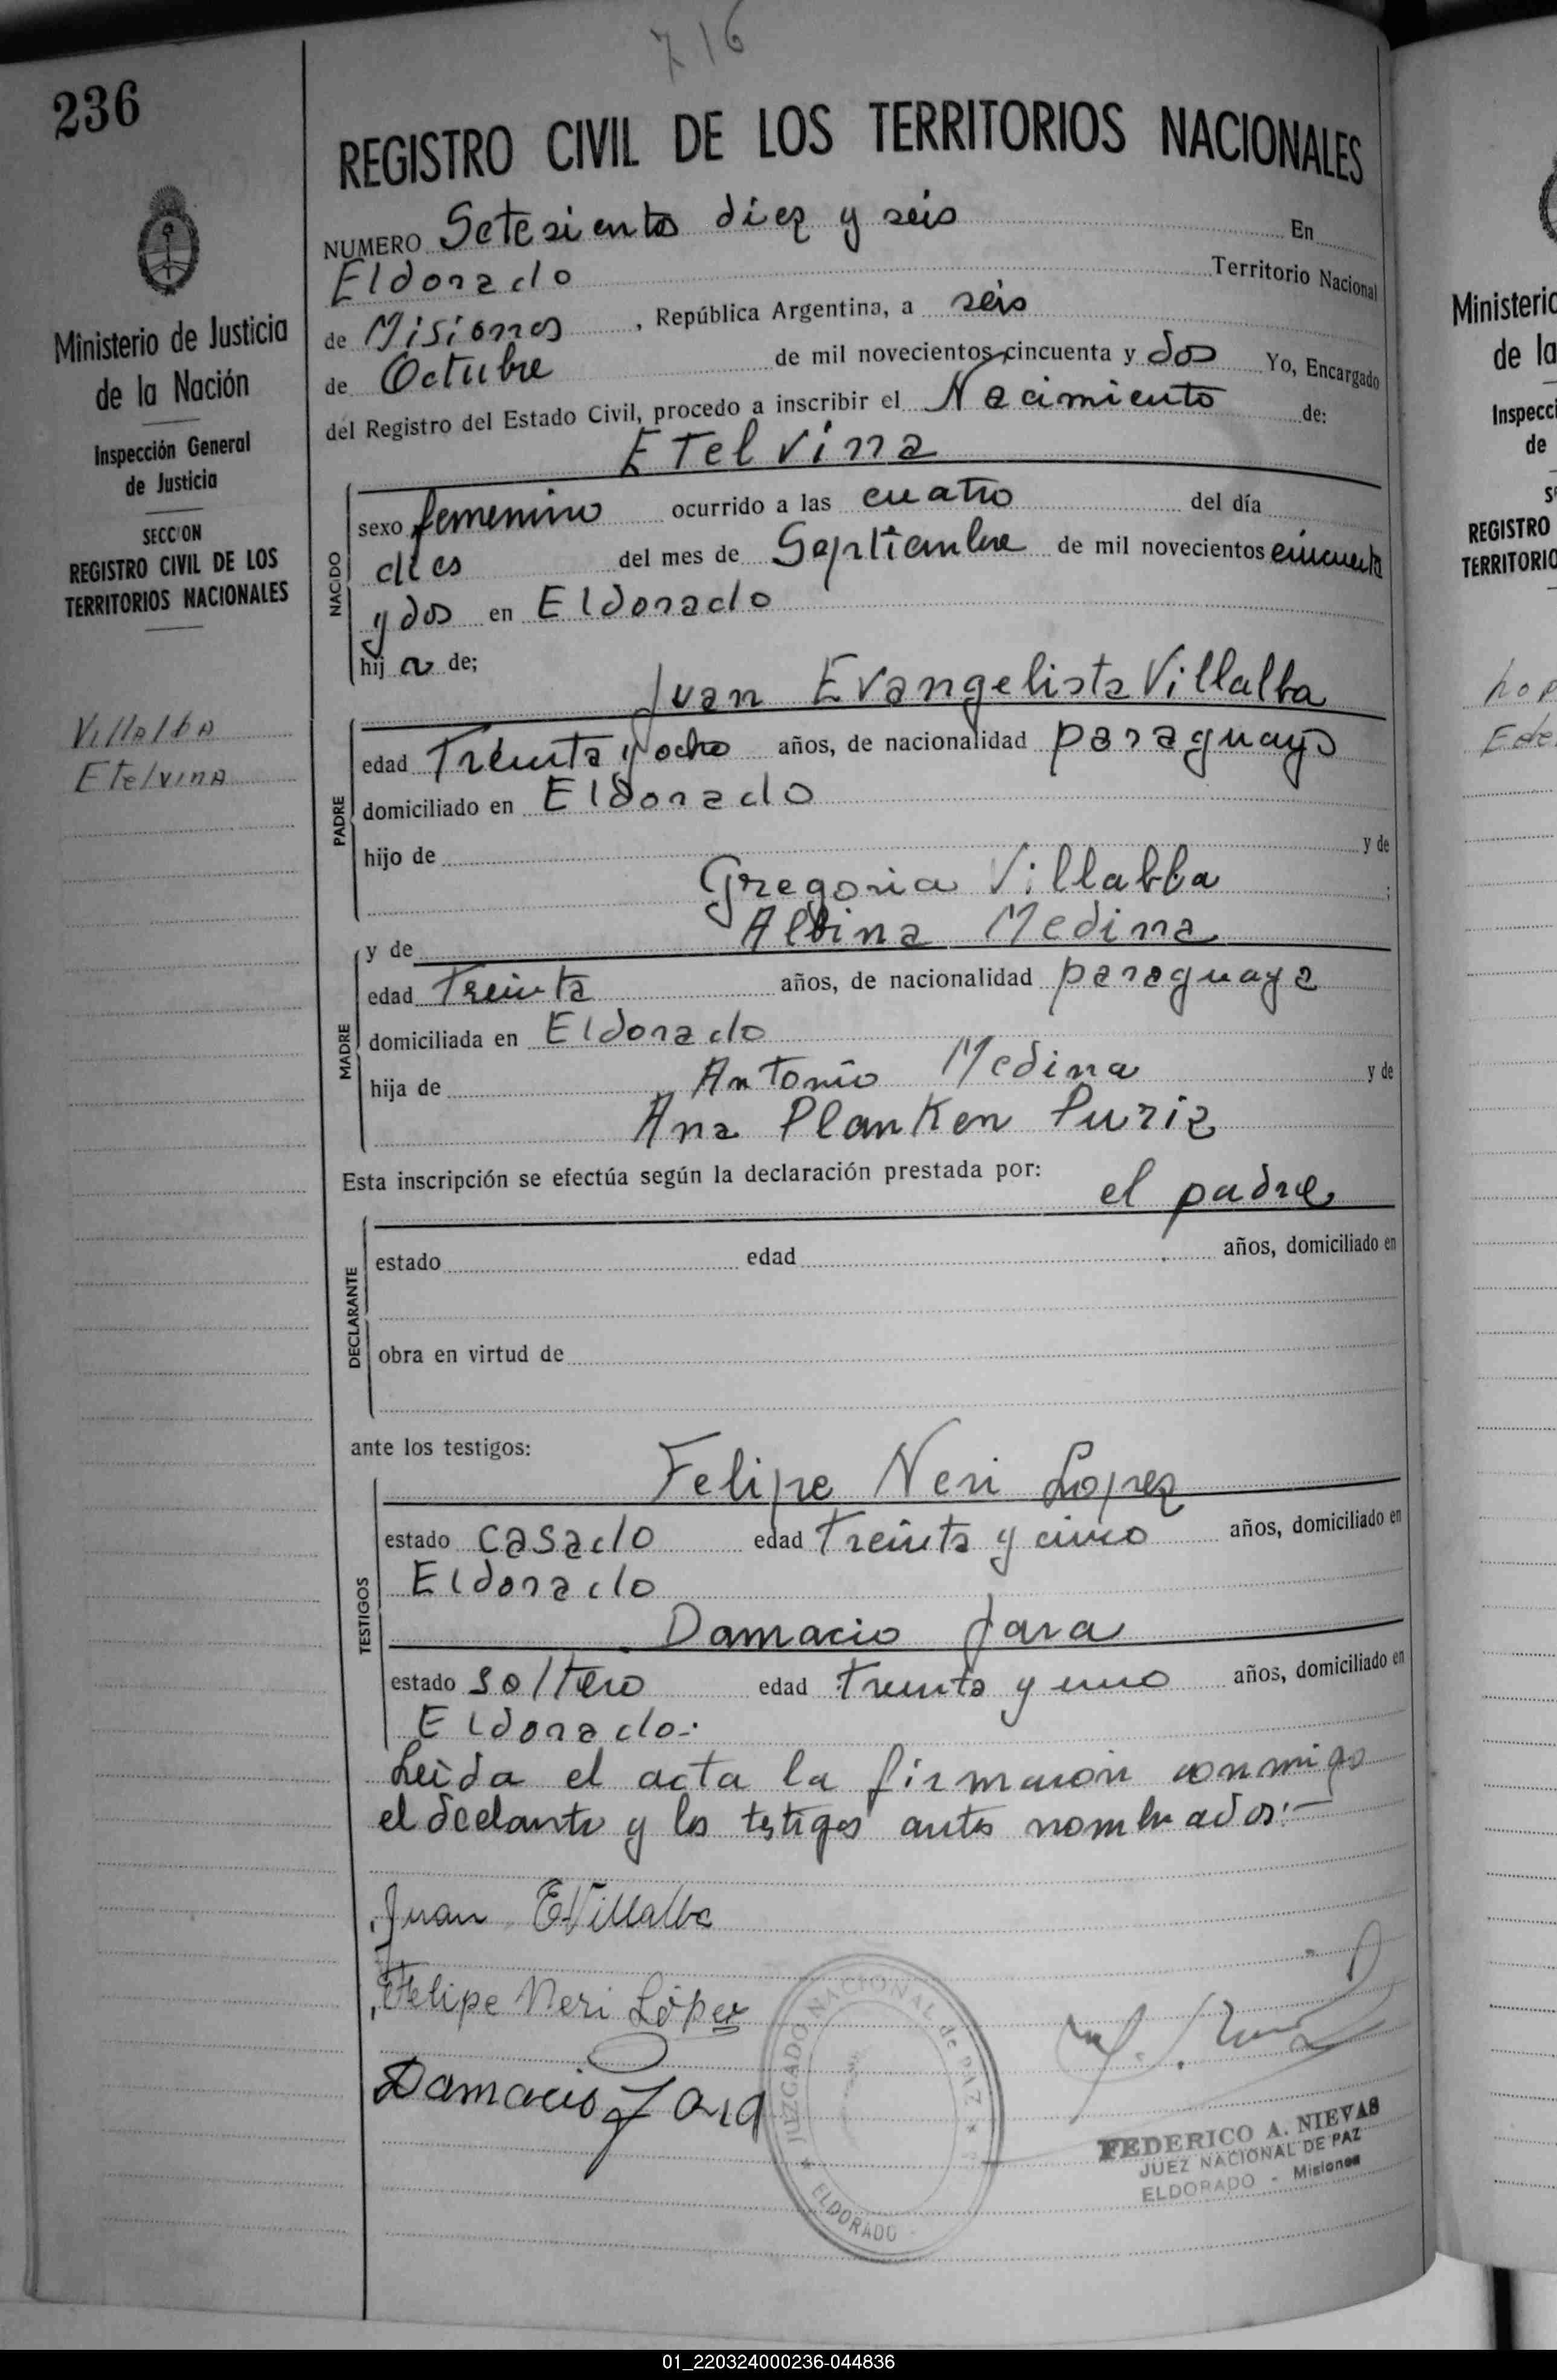 716
236
REGISTRO CIVIL DE LOS TERRITORIOS NACIONALES
NUMERO Setesientos diez y seis En
Eldorado Territorio Nacional
de Misiones, República Argentina, a seis
de Octubre de mil novecientos cincuenta y dos Yo, Encargado
del Registro del Estado Civil, procedo a inscribir el Nacimiento de:
Etelvina
NACIDO
sexo femenino ocurrido a las cuatro del día
dies del mes de Septiembre de mil novecientos cincuenta
y dos en Eldorado
hij a de;
Juan Evangelista Villalba
PADRE
edad Treinta y ocho años, de nacionalidad paraguayo
domiciliado en Eldorado
hijo de y de
Gregoria Villalba ;
y de Albina Medina
MADRE
edad Treinta años, de nacionalidad paraguaya
domiciliada en Eldorado
hija de Antonio Medina y de
Ana Planken Puriz
Esta inscripción se efectúa según la declaración prestada por:
el padre
DECLARANTE
estado edad años, domiciliado en
obra en virtud de
ante los testigos:
Felipe Neri Lopez
TESTIGOS
estado casado edad Treinta y cinco años, domiciliado en
Eldorado
Damacio Jara
estado soltero edad treinta y uno años, domiciliado en
Eldorado.
Leida el acta la firmaron conmigo
el declante y los testigos antes nombrados:-
Juan E Villalba
Felipe Neri López
Damacio Jara
JUZGADO NACIONAL de PAZ
ELDORADO
FEDERICO A. NIEVAS
JUEZ NACIONAL DE PAZ
ELDORADO - Misiones
Ministerio de Justicia
de la Nación
Inspección General
de Justicia
SECCION
REGISTRO CIVIL DE LOS
TERRITORIOS NACIONALES
Villalba
Etelvina
Ministerio
de la
Inspecci
de
REGISTRO
TERRITORIO
01_220324000236-044836